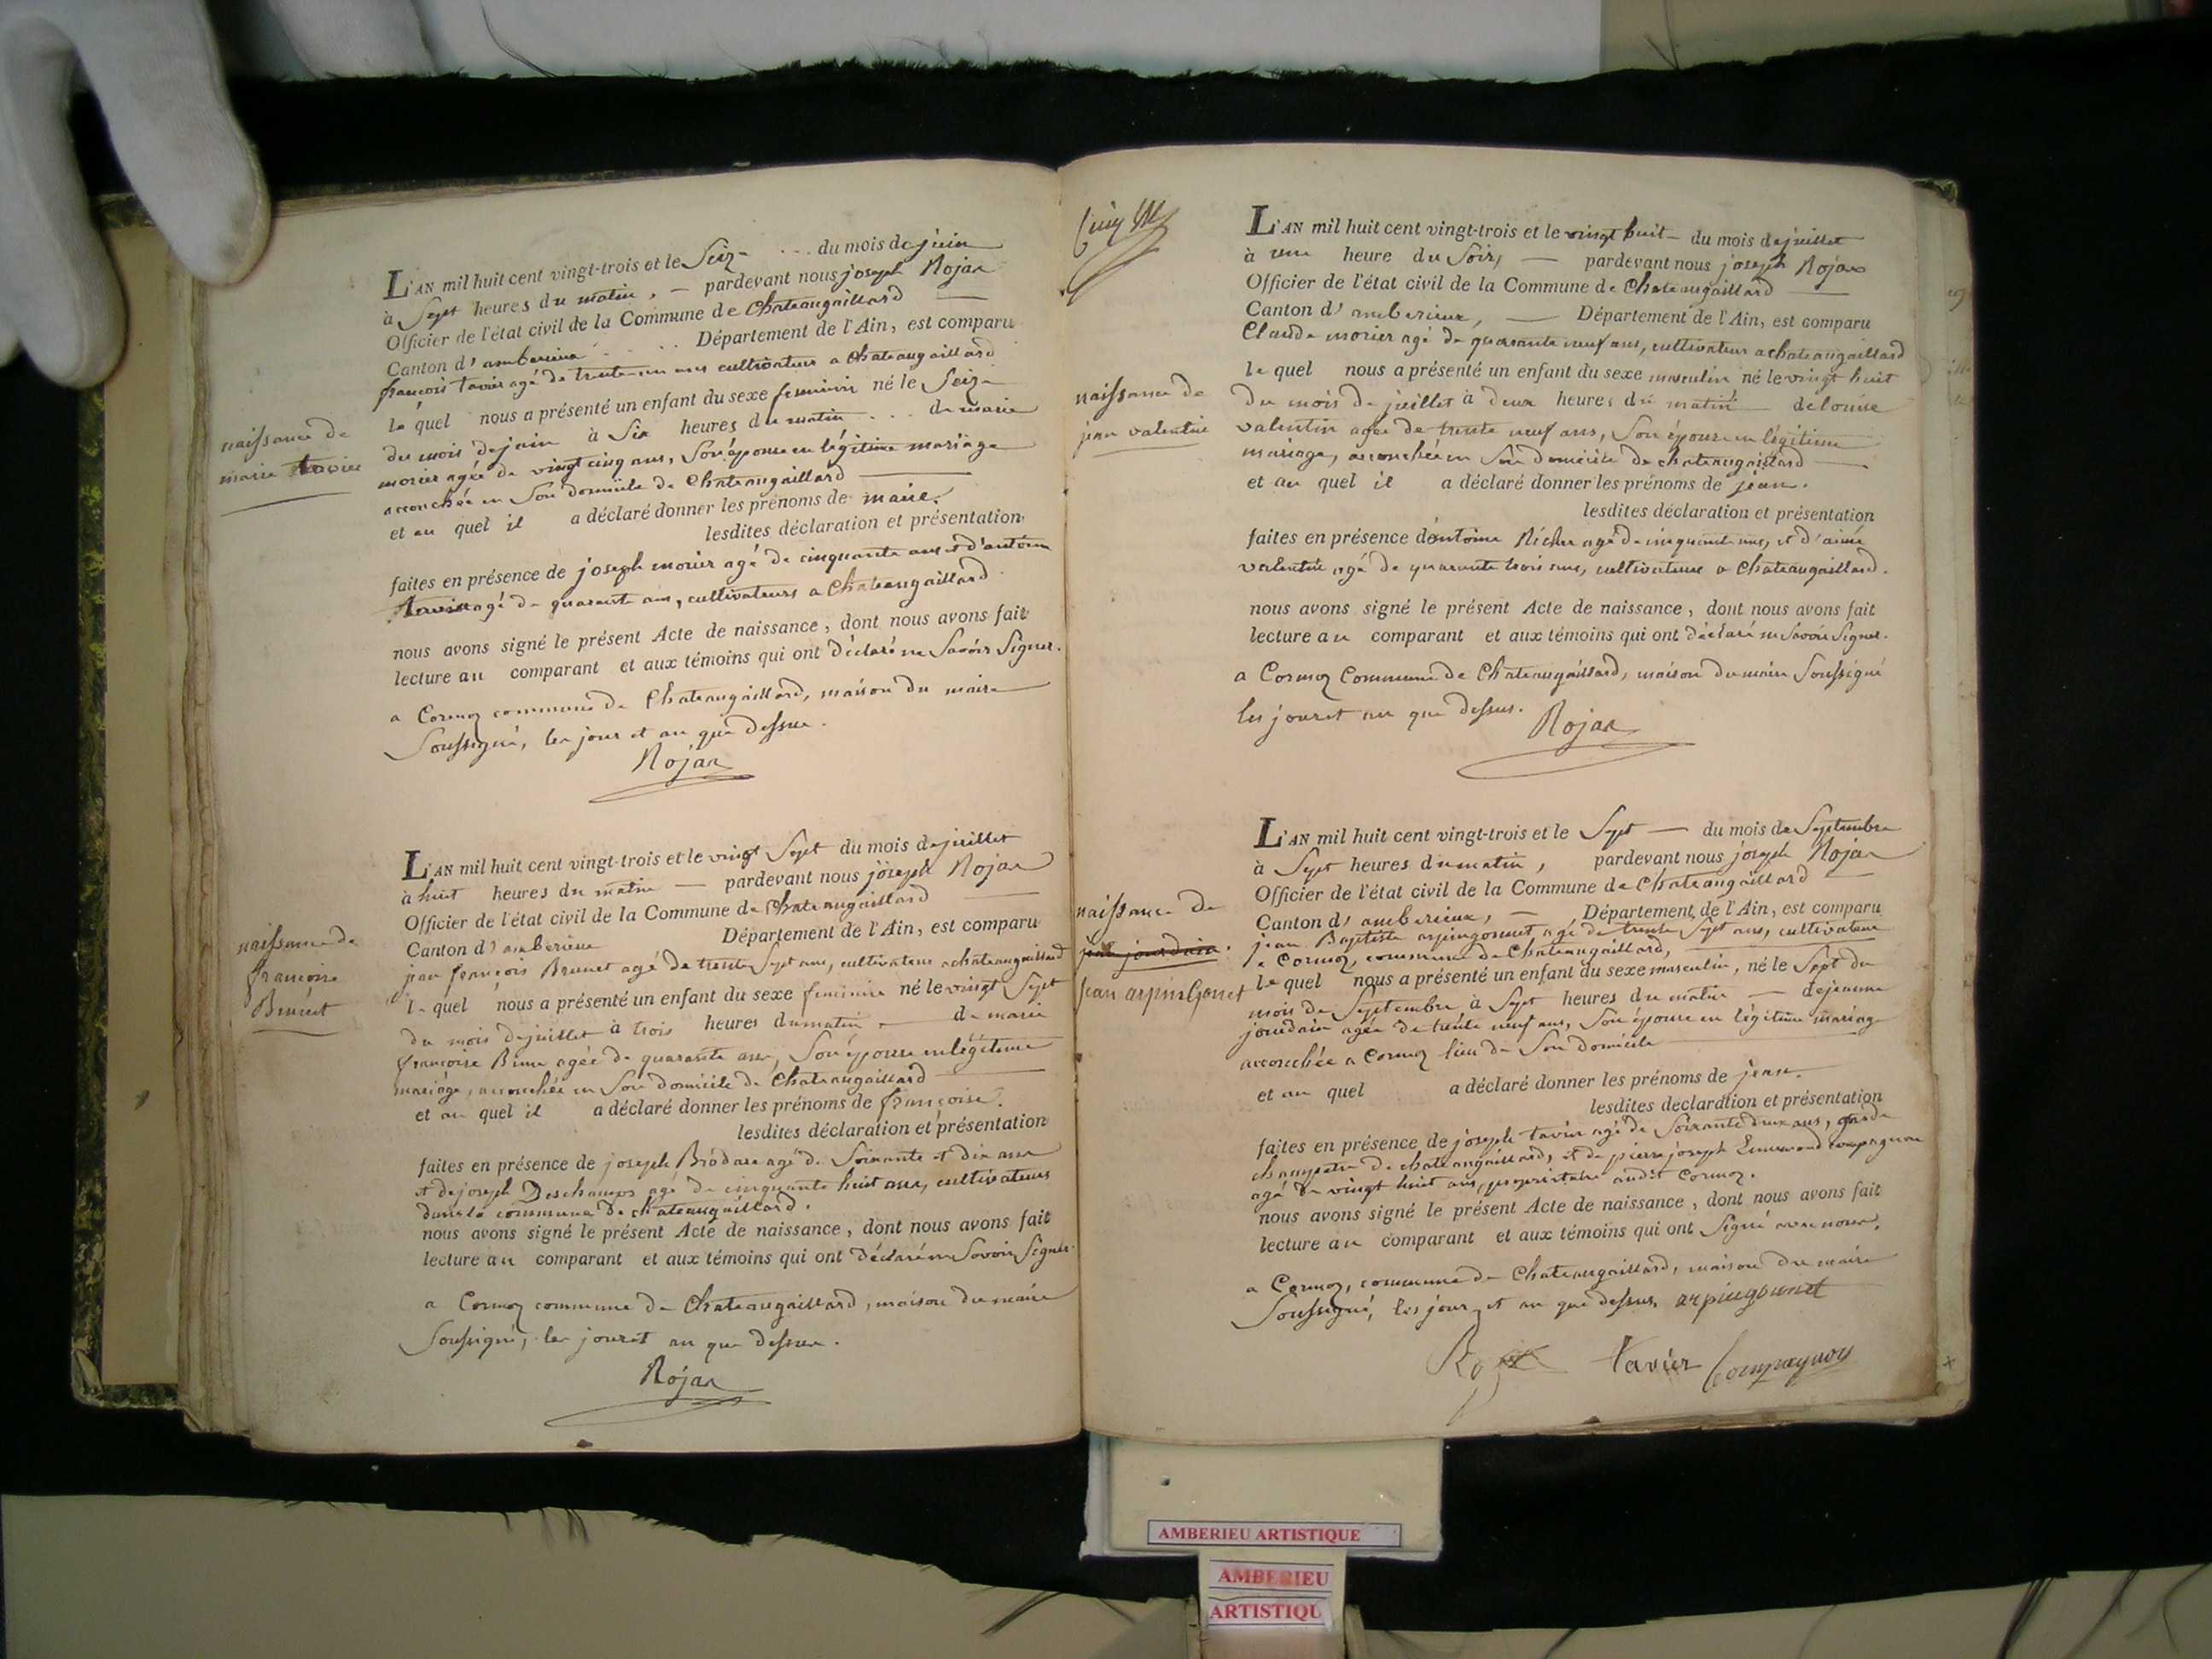 L'AN mil huit cent vingt-trois et le Seize du mois de juin
à Sept heures du matin, pardevant nous joseph Rojan
Officier de l'état civil de la Commune de Chateaugaillard
Canton d'amberieux Département de l'Ain, est comparu
françois tavier agé de trente-un ans cultivateur a Chateaugaillard
le quel nous a présenté un enfant du sexe feminin né le Seize
du mois de juin à Six heures du matin de marie
morier agée de vingt cinq ans, Son épouse en légitime mariage
accouchée en Son domicile de Chateaugaillard
et au quel il a déclaré donner les prénoms de marie.
lesdites déclaration et présentation
faites en présence de joseph morier agé de cinquante ans et d'antoine
tavier agé de quarante ans, cultivateurs a Chateaugaillard.
nous avons signé le présent Acte de naissance, dont nous avons fait
lecture au comparant et aux témoins qui ont déclaré ne Savoir Signer.
a Cormoz commune de Chateaugaillard, maison du maire
Soussigné, les jour et an que dessus.
Rojan
naissance de
marie tavier
L'AN mil huit cent vingt-trois et le vingt Sept du mois de juillet
à huit heures du matin pardevant nous joseph Rojan
Officier de l'état civil de la Commune de Chateaugaillard
Canton d'amberieux Département de l'Ain, est comparu
jean françois Brunet agé de trente Sept ans, cultivateur a chateaugaillard
le quel nous a présenté un enfant du sexe feminin né le vingt Sept
du mois de juillet à trois heures du matin de marie
françoise agée de quarante ans, Son épouse en légitime
mariage, accouchée en Son domicile de Chateaugaillard
et au quel il a déclaré donner les prénoms de françoise.
lesdites déclaration et présentation
faites en présence de joseph agé de Soixante et dix ans
et de joseph Deschamps agé de cinquante huit ans, cultivateurs
dans la commune de chateaugaillard.
nous avons signé le présent Acte de naissance, dont nous avons fait
lecture au comparant et aux témoins qui ont déclaré ne Savoir Signer.
a Cormoz commune de Chateaugaillard, maison du maire
Soussigné, les jour et an que dessus.
Rojan
naissance de
françoise
Brunet
L'AN mil huit cent vingt-trois et le vingt huit du mois de juillet
à une heure du Soir, pardevant nous joseph Rojan
Officier de l'état civil de la Commune de Chateaugaillard
Canton d'amberieux, Département de l'Ain, est comparu
Claude morier agé de quarante neuf ans, cultivateur a chateaugaillard
le quel nous a présenté un enfant du sexe masculin né le vingt huit
du mois de juillet à deux heures du matin de louise
valentin agée de trente neuf ans, Son épouse en légitime
mariage, accouchée en Son domicile de chateaugaillard
et au quel il a déclaré donner les prénoms de jean.
lesdites déclaration et présentation
faites en présence d'antoine agé de cinquante ans, et d'aimé
valentin agé de quarante trois ans, cultivateurs a Chateaugaillard.
nous avons signé le présent Acte de naissance, dont nous avons fait
lecture au comparant et aux témoins qui ont déclaré ne Savoir Signer.
a Cormoz Commune de Chateaugaillard, maison du maire Soussigné
les jour et an que dessus.
Rojan
naissance de
jean valentin
L'AN mil huit cent vingt-trois et le Sept du mois de Septembre
à Sept heures du matin, pardevant nous joseph Rojan
Officier de l'état civil de la Commune de Chateaugaillard
Canton d'amberieux, Département de l'Ain, est comparu
jean Baptiste arpingonnet agé de trente Sept ans, cultivateur
a Cormoz, commune de Chateaugaillard,
le quel nous a présenté un enfant du sexe masculin, né le Sept du
mois de Septembre à Sept heures du matin de jeanne
jourdain agée de trente neuf ans, Son épouse en légitime mariage
accouchée a Cormoz lieu de Son domicile
et au quel a déclaré donner les prénoms de jean.
lesdites déclaration et présentation
faites en présence de joseph tavier agé de Soixante deux ans, garde
champetre de chateaugaillard, et de pierre joseph compagnon
agé de vingt huit ans, propriétaire audit Cormoz.
nous avons signé le présent Acte de naissance, dont nous avons fait
lecture au comparant et aux témoins qui ont Signé avec nous.
a Cormoz, commune de Chateaugaillard, maison du maire
Soussigné, les jour et an que dessus, arpingonnet
Rojan tavier Compagnon
naissance de
jean jourdain.
Jean arpingonet
AMBERIEU ARTISTIQUE
AMBERIEU
ARTISTIQU